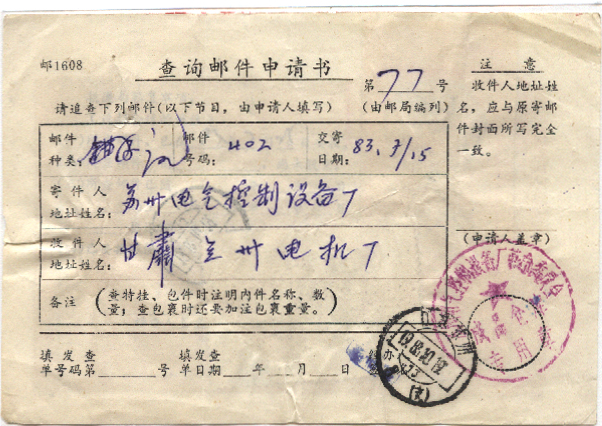 邮1608
查询邮件申请书
第 77 号
请追查下列邮件(以下节目,由申请人填写)
(由邮局编列)
邮件种类:
邮件号码: 402
交寄日期: 83.7/15
寄件人地址姓名: 苏州电气控制设备厂
收件人地址姓名: 甘肃兰州电机厂
备注 (查特挂、包件时注明内件名称、数
量;查包裹时还要加注包裹重量。)
填发查单号码第____号
填发查单日期__年__月__日
注意
收件人地址姓
名,应与原寄邮
件封面所写完全
一致。
(申请人盖章)
专用章